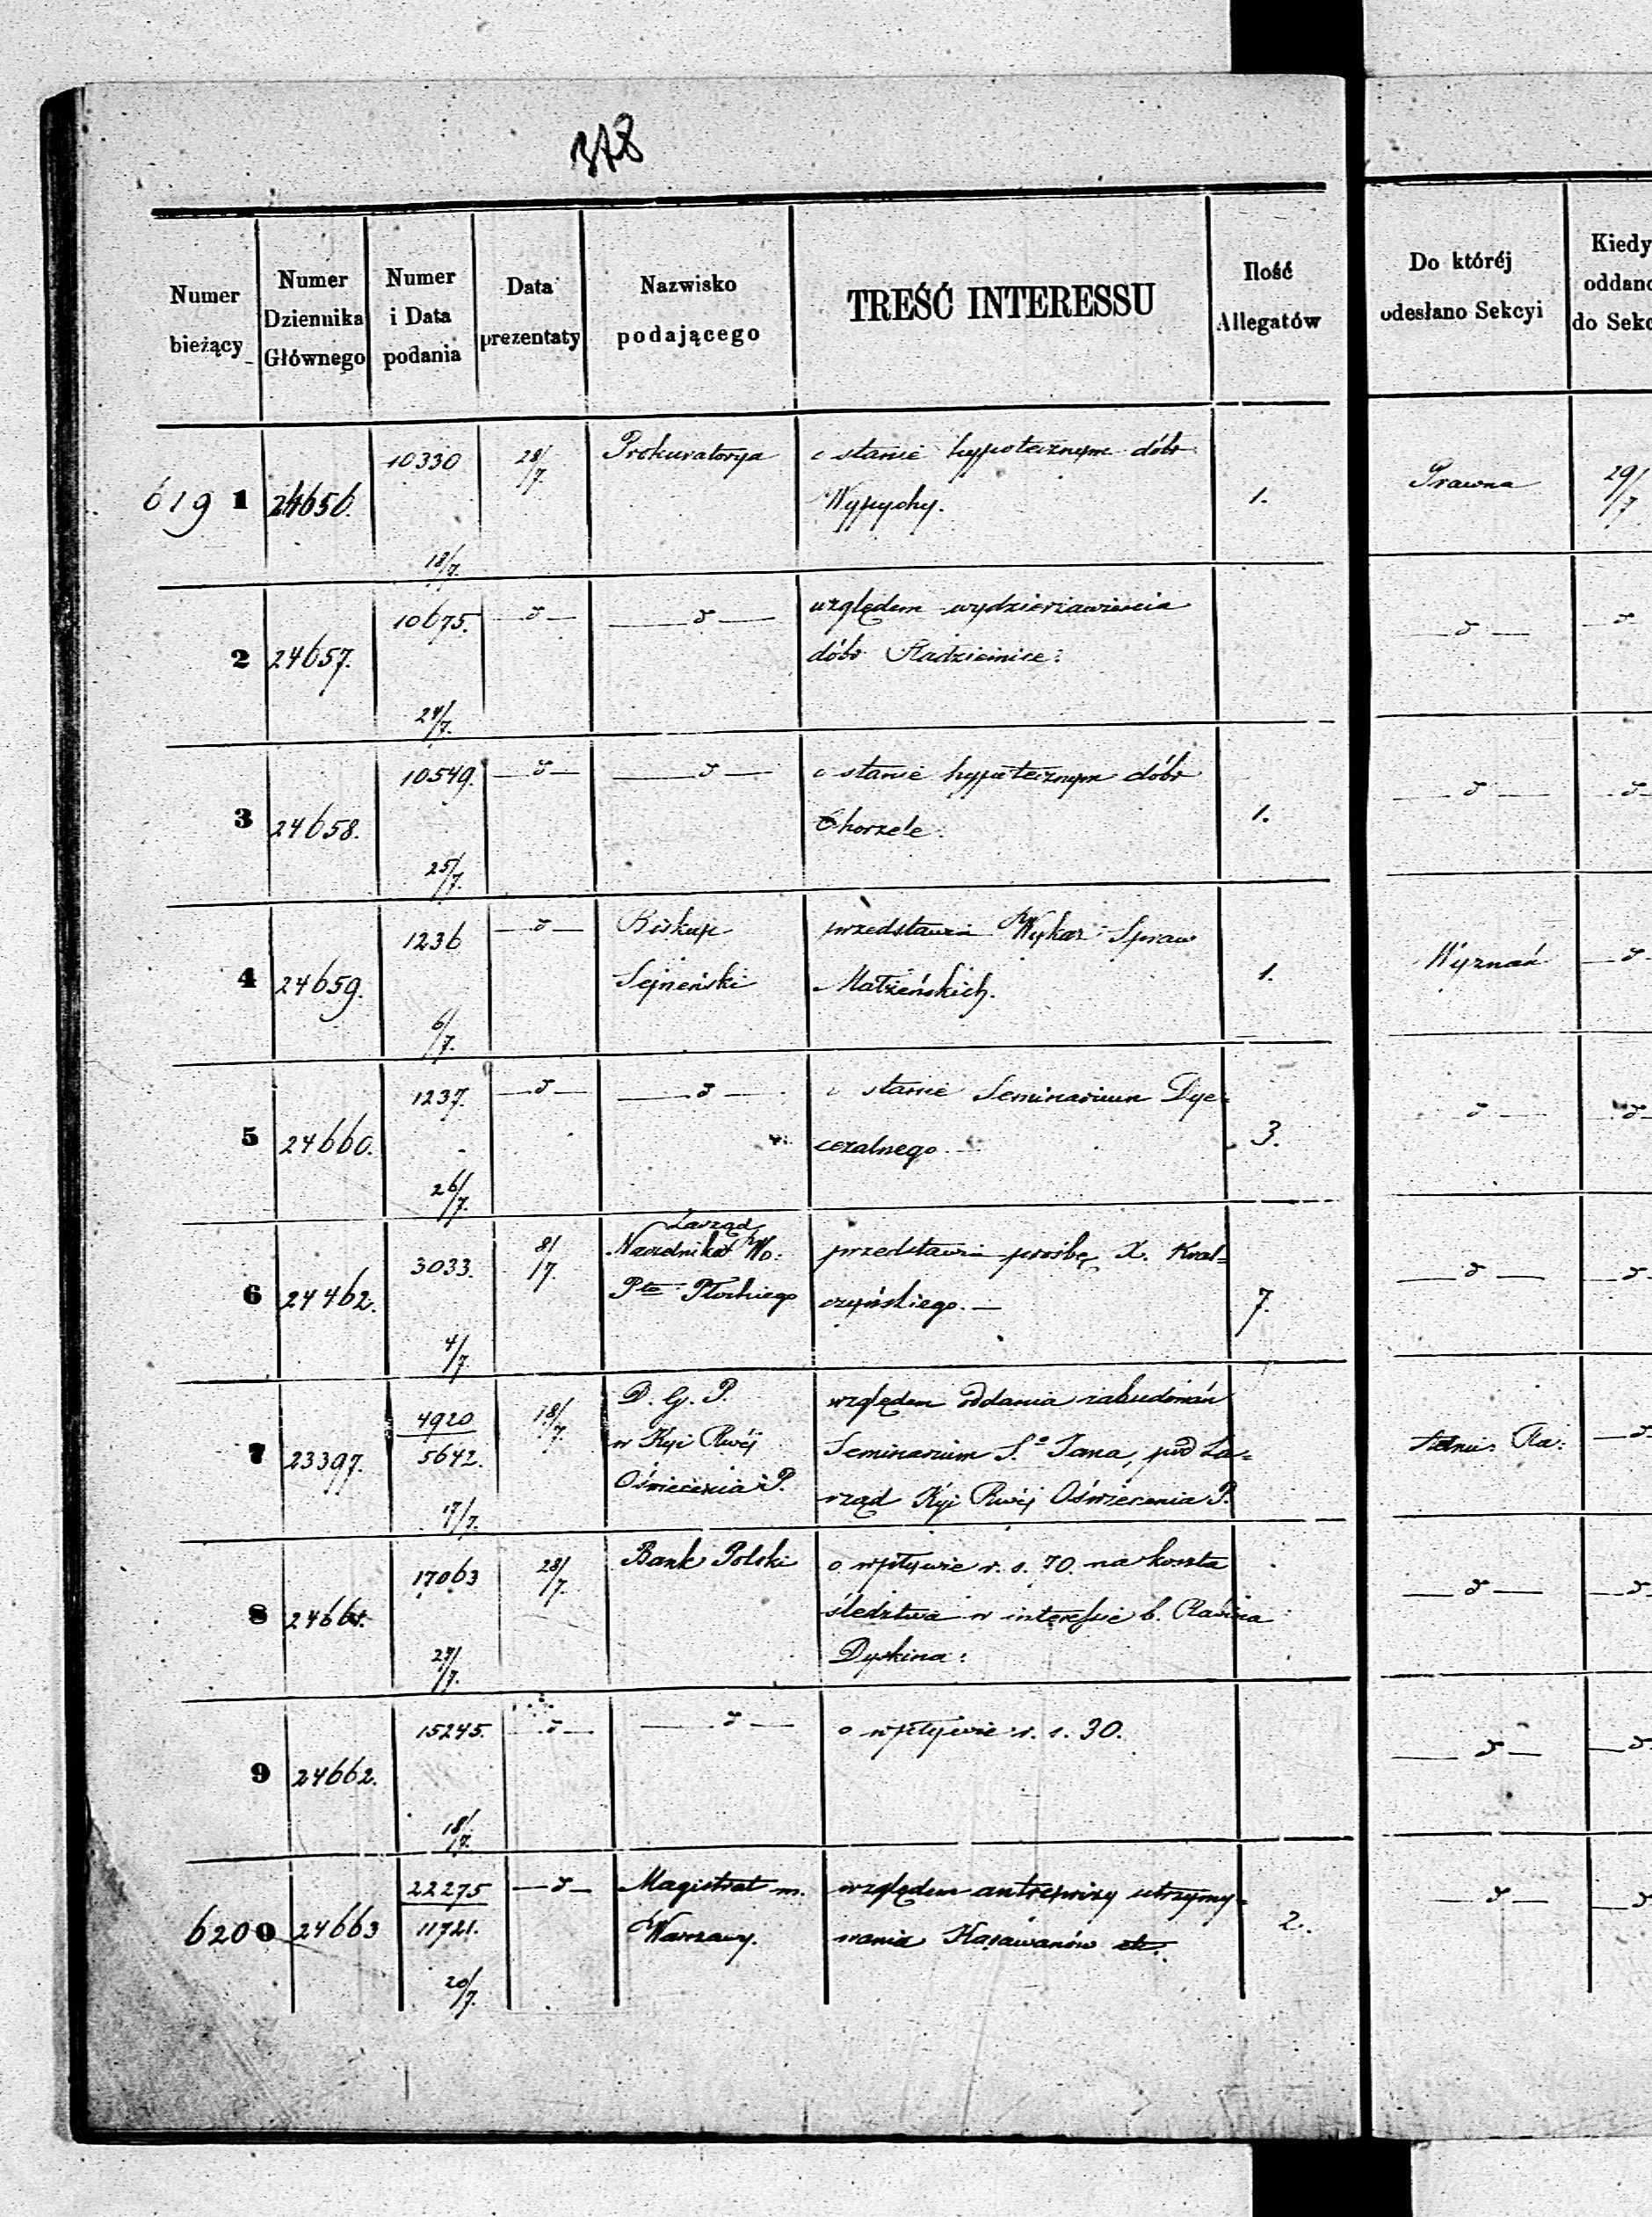 378
Numer bieżący
Numer Dziennika Głównego
Numer i Data podania
Data prezentaty
Nazwisko podającego
TREŚĆ INTERESSU
Ilość Allegatów
Do któréj odesłano Sekcyi
Kiedy oddano do Sekc
619 1 24656. 10330 18/7. 28/7. Prokuratorya o stanie hypotecznym dóbr 1. Prawna 29/7
Wypychy.
2 24657. 10675. 24/7. —d— —d— względem wydzierżawienia —d— —d—
dóbr Radzieinice:
3 24658. 10549. 25/7. —d— —d— o stanie hypotecznym dóbr 1. —d— —d—
Chorzele.
4 24659. 1236 6/7. —d— Biskup przedstawia Wykaz Spraw 1. Wyznań —d—
Sejneński Małżeńskich.
5 24660. 1237. 26/7. —d— —d— o stanie Seminarium Dye= 3. —d— —d—
cezalnego.—
6 24462. 3033. 4/7. 8/7. Zarząd
Naczelnika Wo: przedstawia prośbę X. Kral= 7. —d— —d—
Ptu Płockiego czyńskiego.—
7 23397. 4920 5642. 17/7. 18/7. D. G. P. względem oddania zabudowań —d—
w Kyi Rwéj Seminarium S.o Jana, pod Za=
Oświecenia P. rząd Kyi Rwéj Oświecenia P.
8 17063 27/7. 28/7. Bank Polski o wpływie r. s. 70. na koszta —d— —d—
śledztwa w interesie b. Rabina
Dyskina:
9 24662. 15245. 18/7. —d— —d— o wpływie r. s. 30. —d— —d—
6200 24663 22275 11721. 20/7. —d— Magistrat m. względem antrepryzy utrzymy= 2. —d— —d—
Warszawy. wania Karawanów etc.